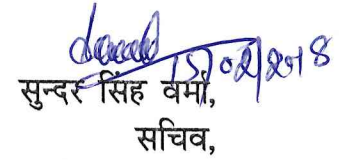 15/02/2018
सुन्दर सिंह वर्मा,
सचिव,